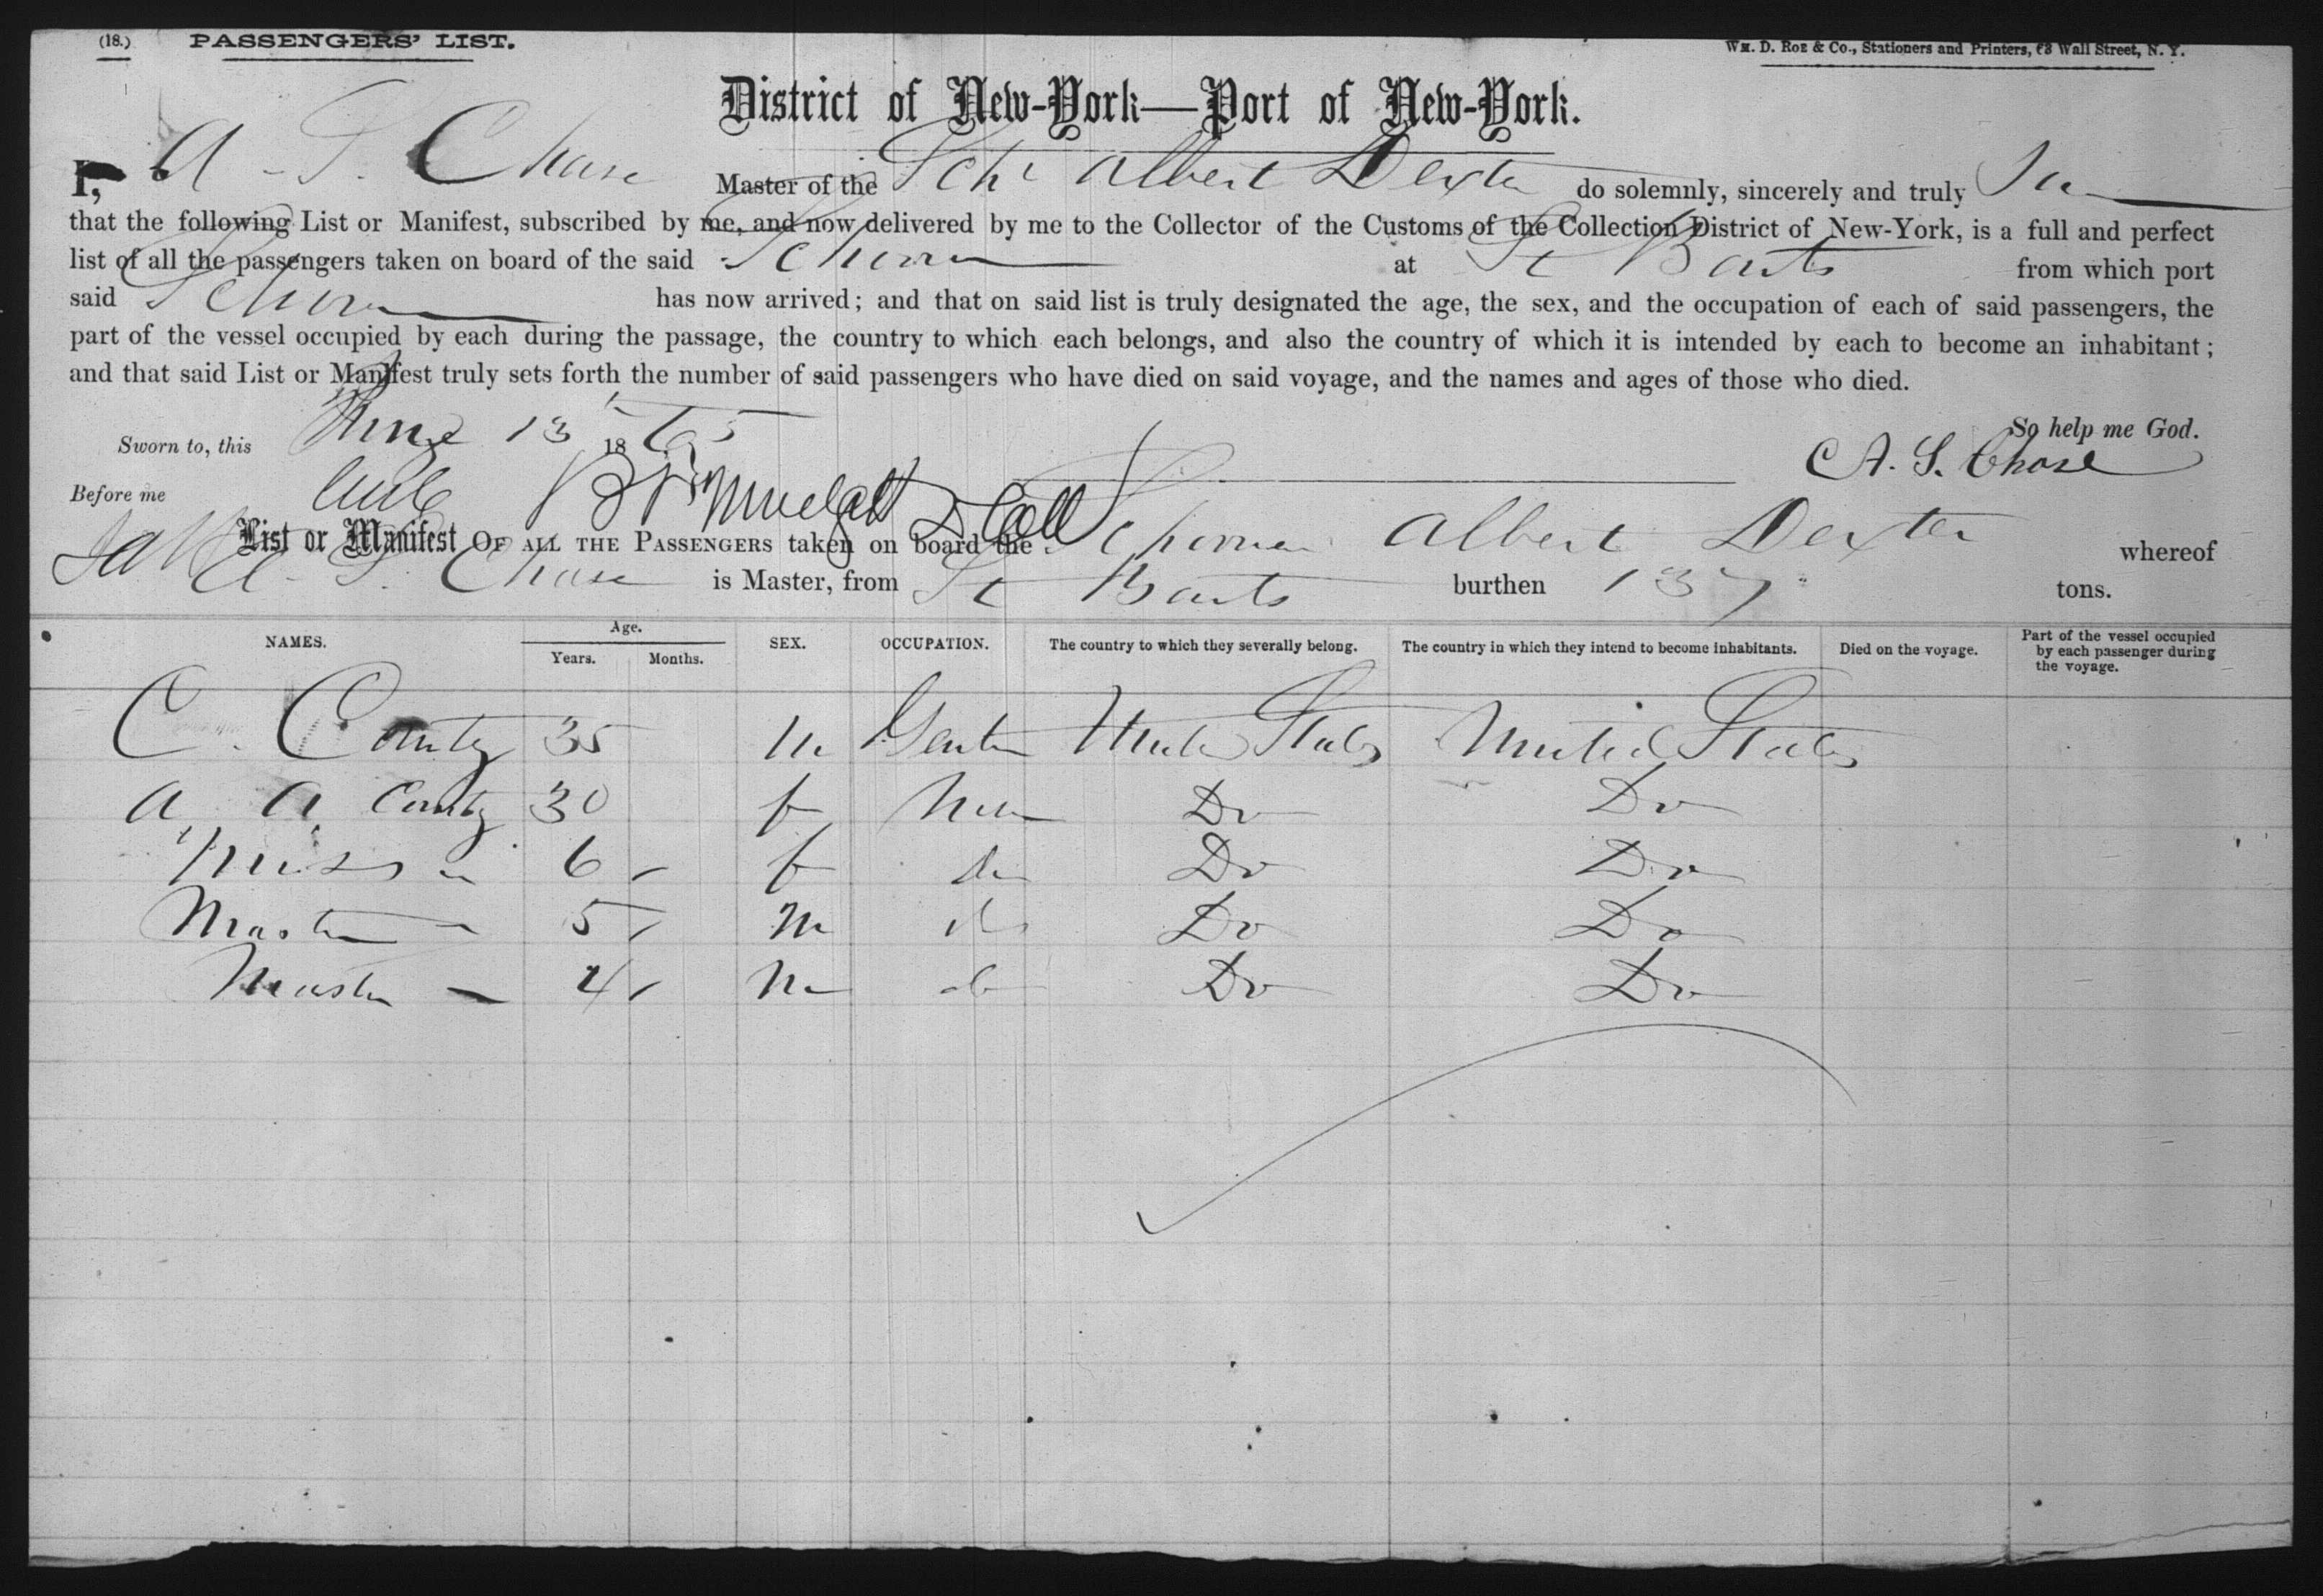 (18.) PASSENGERS' LIST. WM. D. ROE & Co., Stationers and Printers, 63 Wall Street, N. Y.
District of New-York—Port of New-York.
I, A. S. Chase Master of the Schr Albert Dexter do solemnly, sincerely and truly
that the following List or Manifest, subscribed by me, and now delivered by me to the Collector of the Customs of the Collection District of New-York, is a full and perfect
list of all the passengers taken on board of the said at St Barts from which port
said has now arrived; and that on said list is truly designated the age, the sex, and the occupation of each of said passengers, the
part of the vessel occupied by each during the passage, the country to which each belongs, and also the country of which it is intended by each to become an inhabitant;
and that said List or Manifest truly sets forth the number of said passengers who have died on said voyage, and the names and ages of those who died.
So help me God.
Sworn to, this June 13 1865
A. S. Chase
Before me
List or Manifest OF ALL THE PASSENGERS taken on board the Albert Dexter whereof
A. S. Chase is Master, from St Barts burthen 137 tons.
NAMES. Age. Years. Months. SEX. OCCUPATION. The country to which they severally belong. The country in which they intend to become inhabitants. Died on the voyage. Part of the vessel occupied by each passenger during the voyage.
C. 35 m United States United States
A. A. 30 f Do Do
Miss " 6 f do Do Do
Master " 5 m do Do Do
Master — 4 m do Do Do